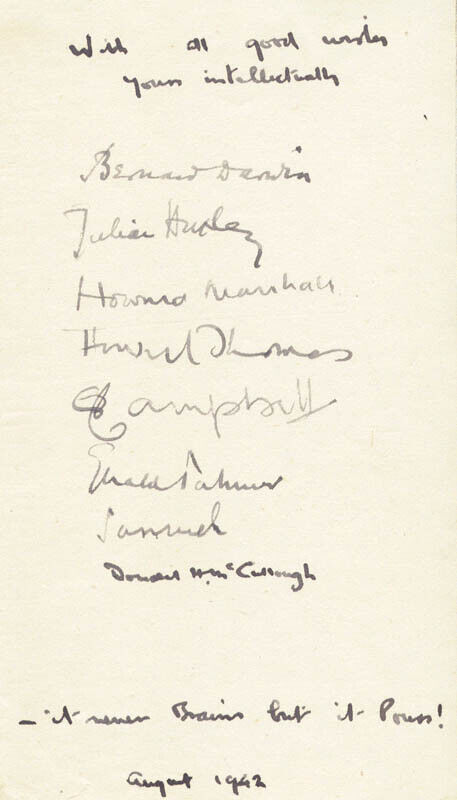 With all good wishes
yours intellectually
Bernard Darwin
Julian Huxley
Howard Marshall
Howard Thomas
Campbell
Palmer
Donald H. McCullough
- it never Brains but it Pours!
August 1942